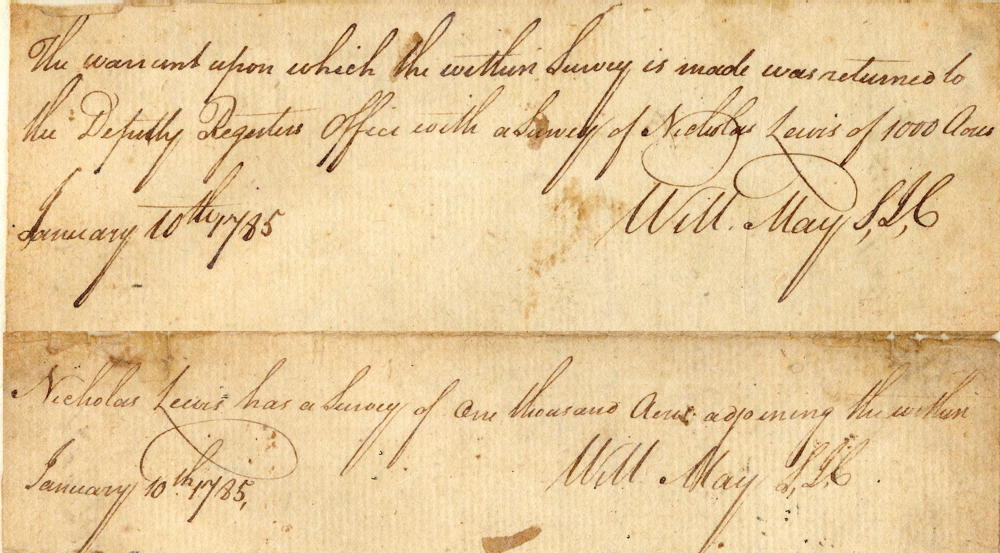 The warrant upon which the within Survey is made was returned to
the Deputy Registers Office with a Survey of Nicholas Lewis of 1000 Acres
January 10th 1785 Will. May S, J, C
Nicholas Lewis has a Survey of One thousand Acres adjoining the within
January 10th 1785, Will May S, J, C